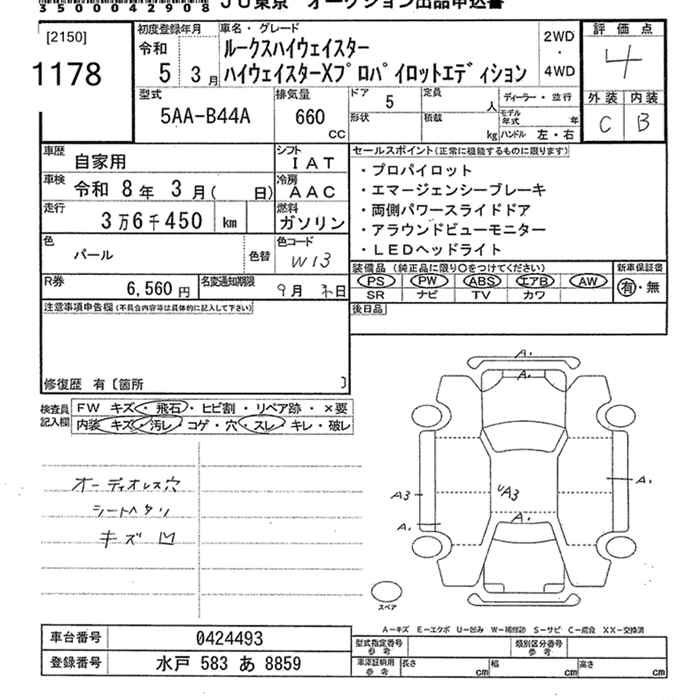 35000042908 JU東京 オークション出品申込書
[2150]
1178
初度登録年月
令和
5 3月
車名・グレード
ルークスハイウェイスター
ハイウェイスターXプロパイロットエディション
2WD
・
4WD
評価点
4
外装 内装
C B
型式
5AA-B44A
排気量
660
CC
ドア 5
定員 人
形状
積載 kg
ディーラー・並行
モデル年式 年
ハンドル 左・右
車歴
自家用
シフト
IAT
車検
令和 8年 3月( 日)
冷房
AAC
走行
3万6千450 km
燃料
ガソリン
色
パール
色替
色コード
W13
R券
6,560円
名変通知期限
9月 末日
セールスポイント(正常に機能するものに限ります)
・プロパイロット
・エマージェンシーブレーキ
・両側パワースライドドア
・アラウンドビューモニター
・LEDヘッドライト
装備品(純正品に限り○をつけてください)
PS PW ABS エアB AW
SR ナビ TV カワ
新車保証書
有・無
後日品
注意事項申告欄(不具合内容等は具体的に記入して下さい)
修復歴 有〔箇所 〕
検査員
記入欄
FW キズ・飛石・ヒビ割・リペア跡・×要
内装 キズ・汚レ・コゲ・穴・スレ・キレ・破レ
オーディオレス穴
シートヘタリ
キズ 凹
A1
A1
A3
A3
A1
A1
スペア
A-キズ E-エクボ U-凹み W-補修跡 S-サビ C-腐食 XX-交換済
車台番号 0424493
登録番号 水戸 583 あ 8859
型式指定番号
参考
類別区分番号
参考
車庫証明用
参考
長さ cm 幅 cm 高さ cm